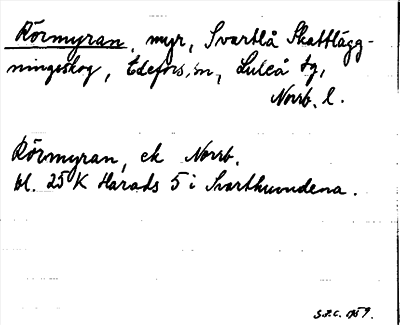 Rörmyran, myr, Svartlå Skattlägg-
ningsskog, Edefors sn, Luleå tg,
Norrb. l.
Rörmyran, ek Norrb.
bl. 25 K Harads 5 i Svarthuvudena.
S.F.C. 1959.